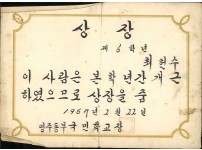 상장
제6학년
최현수
이 사람은 본 학년간 개근
하였으므로 상장을 줌
1967년 2월 22일
영주동부국민학교장